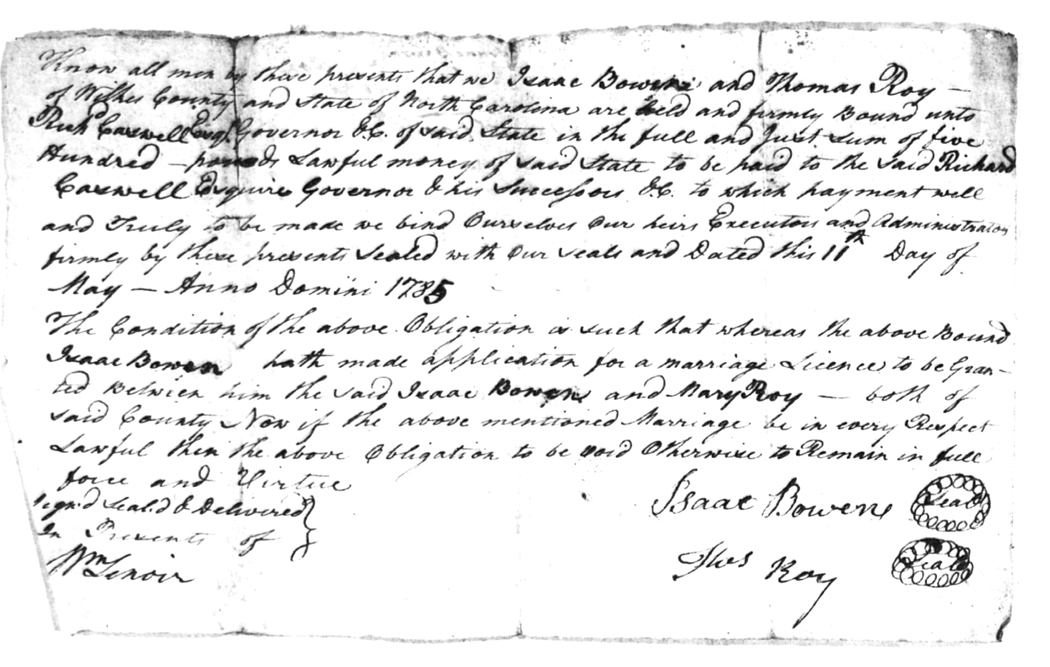 Know all men by these presents that we Isaac Bowen and Thomas Roy —
of Wilkes County and State of North Carolina are held and firmly Bound unto
Richd Caswell Esqr Governor &C. of said State in the full and Just Sum of five
Hundred — pounds Lawful money of said State to be paid to the said Richard
Caswell Esquire Governor & his Successors &C. to which payment well
and Truly to be made we bind Ourselves Our heirs Executors and Administrators
firmly by these presents Sealed with Our Seals and Dated this 11th Day of
May — Anno Domini 1785
The Condition of the above Obligation is such that whereas the above Bound
Isaac Bowen hath made application for a marriage Licence to be Gran-
ted Between him the said Isaac Bowen and Mary Roy — both of
said County Now if the above mentioned Marriage be in every Respect
Lawful then the above Obligation to be void Otherwise to Remain in full
force and Virtue
Signd Seald & Delivered
In Presents of
Wm Lenoir
Isaac Bowen Seal
Thos Roy Seal